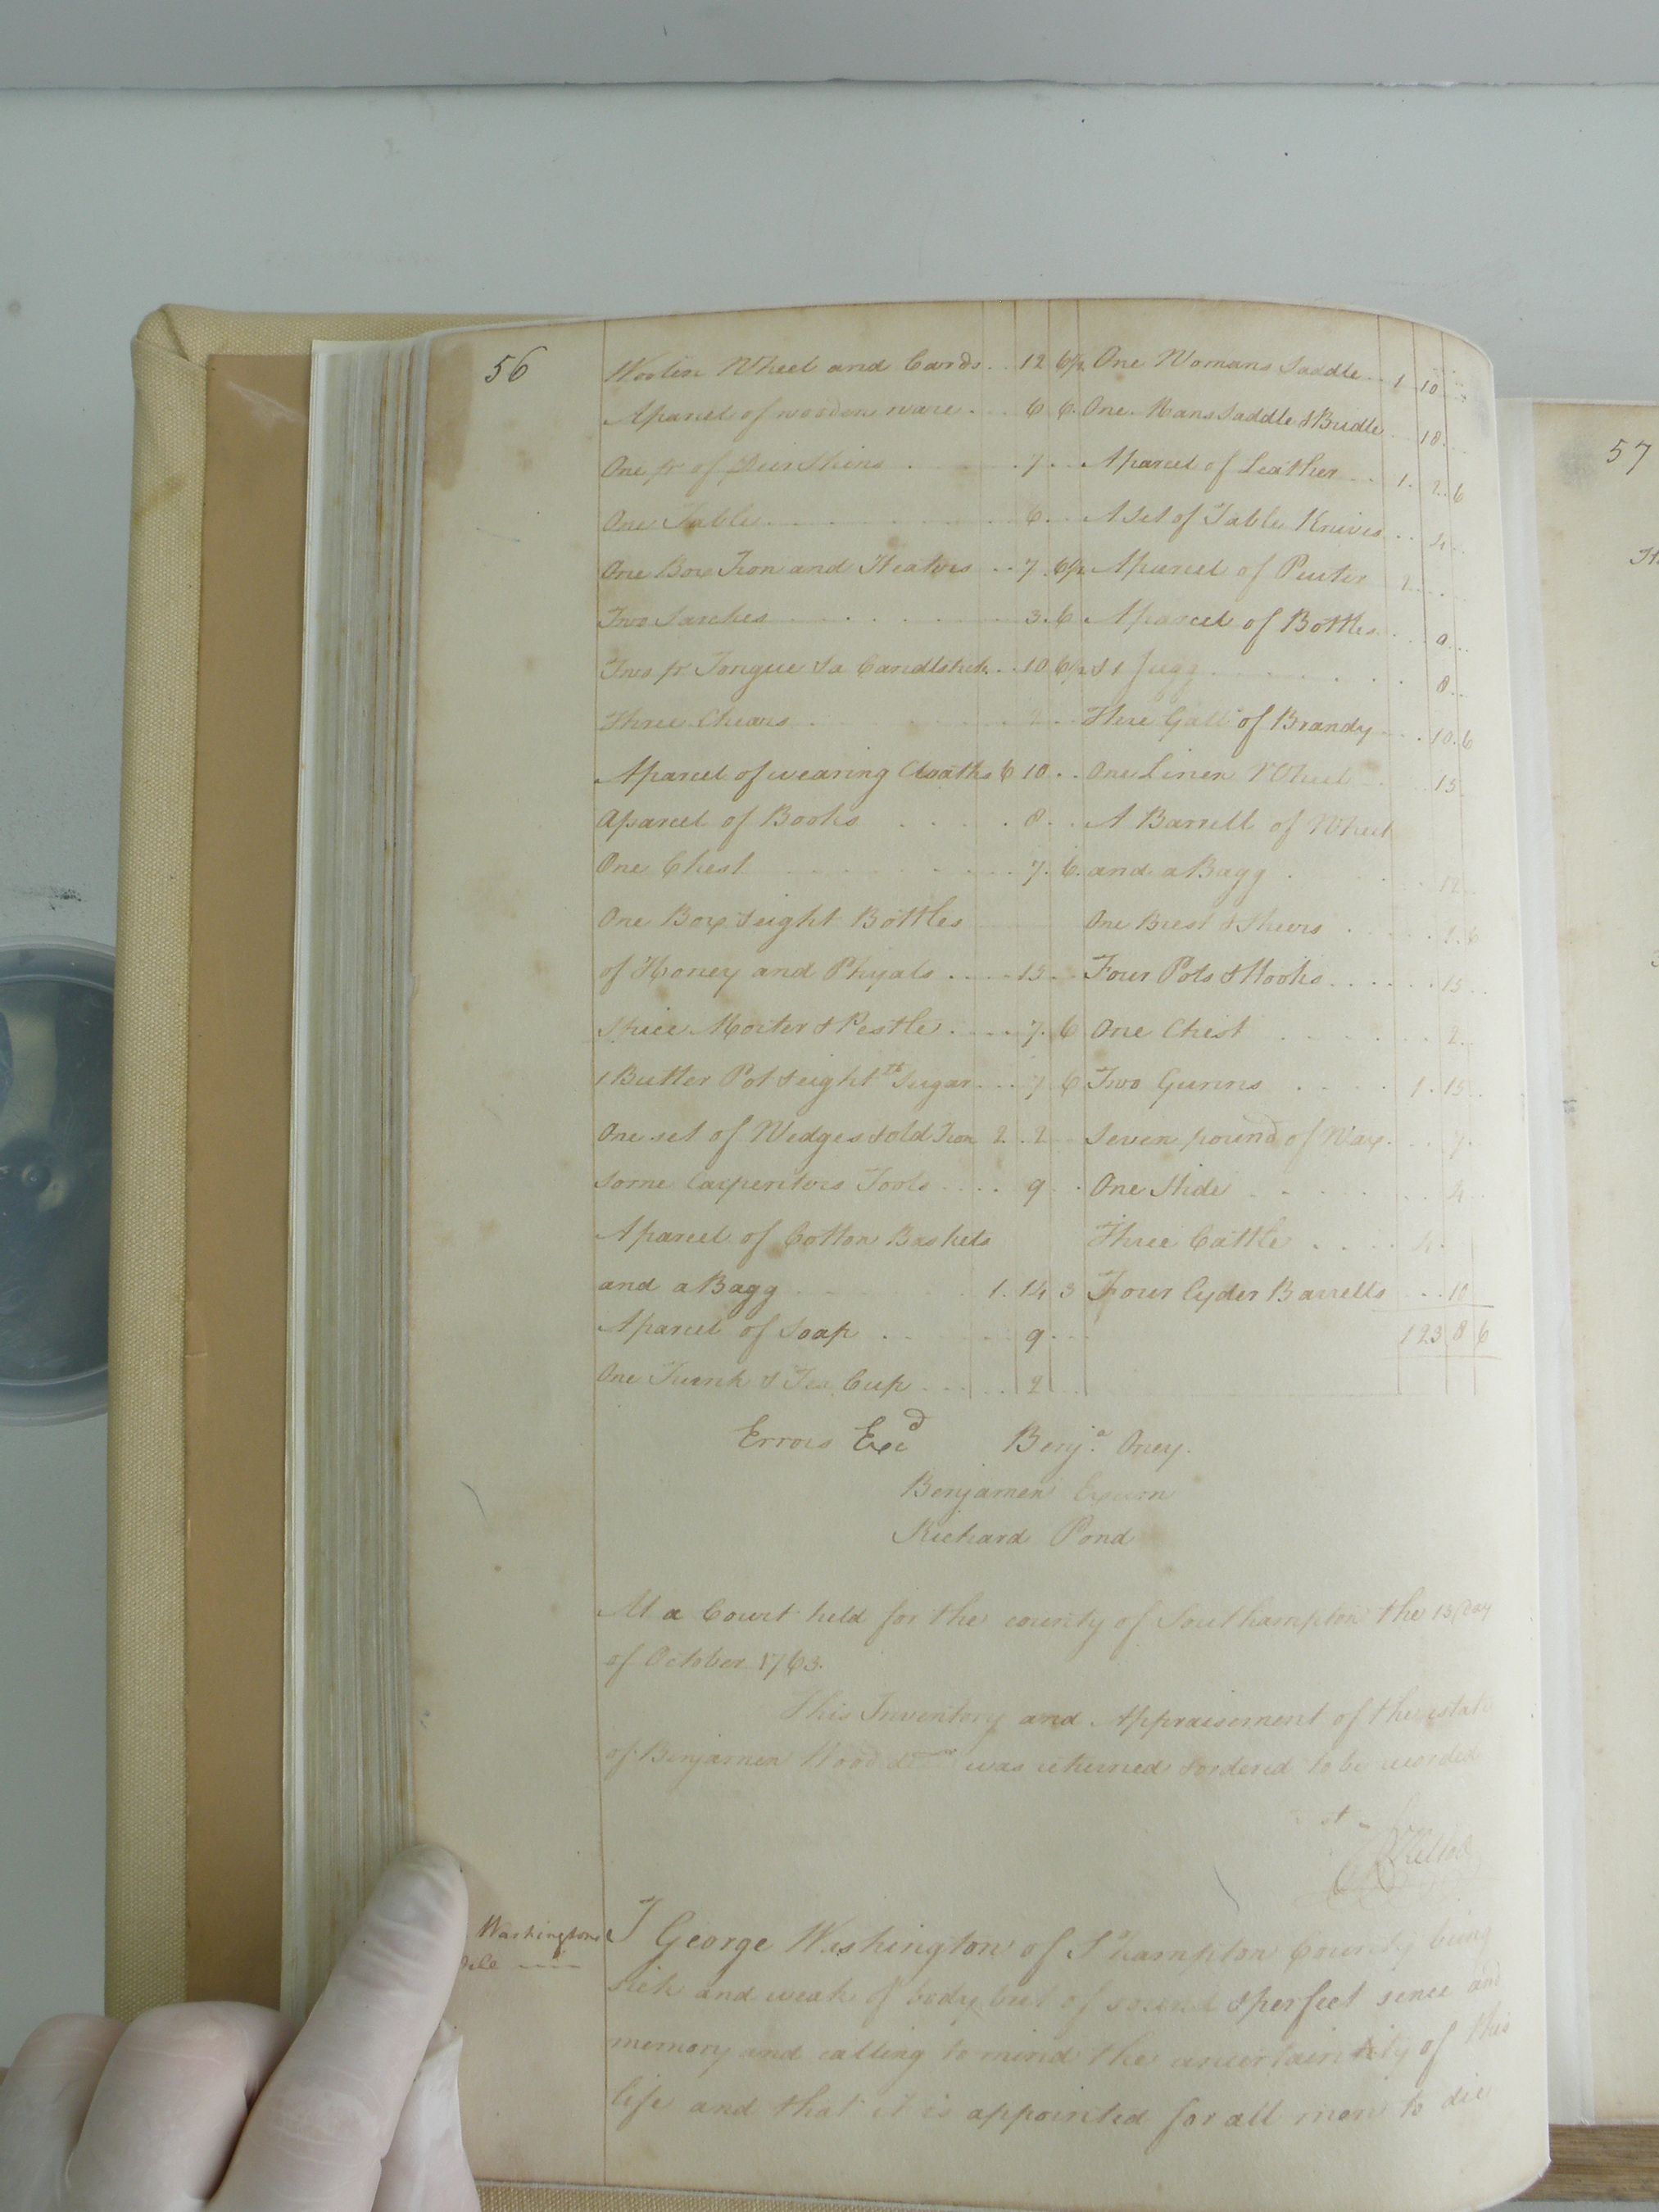 56
Woolen Wheel and Cards . . 12 6½
Aparcel of wooden ware . . . 6 6
One pr of Deer Skins . . . 7 . .
One Table . . . 6 . .
One Box Iron and Heaters . . 7 . 6½
Two Sarches . . . 3 . 6
Two pr Tongue Sa Candlstick . . 10 6½
Three Chears . . . 2 . .
Aparcel of wearing Cloaths 6 10 . .
Aparcel of Books . . . 8 . .
One Chest . . . 7 . 6
One Box & eight Bottles
of Honey and Phyals . . . . 15 . .
Spice Morter & Pestle . . . . 7 . 6
1 Butter Pot & eight lb Sugar . . . 7 6
One set of Wedges & old Iron 2 . . 2
Some Carpenters Tools . . . . 9 . .
Aparcel of Cotton Baskets
and a Bagg . . . 1 . 14 3
Aparcel of Soap . . . 9 . . .
One Trunk & Tea Cup . . . . 2 . .
One Womans Saddle . . 1 10
One Mans Saddle & Bridle . . 18
Aparcel of Leather . . . 1 . 2 . 6
A Set of Table Knives . . 4 . .
Aparcel of Peuter 1 . . .
Aparcel of Bottles . . .
& 1 Jugg . . . 8 . .
Three Galls of Brandy . . . 10 . 6
One Linen Wheel . . . 15
A Barrell of Wheet
and a Bagg . . . 12
One Brest & Shears . . . 1 . 6
Four Pots & Hooks . . . . . . 15 . .
One Chest . . . 2 . .
Two Gunns . . . . 1 . 15 . .
Seven pound of Wax . . . 7 .
One Hide . . . 4 . .
Three Cattle . . . . 4 .
Four Cyder Barrells . . . 10
123 8 6
Errors Excd Benja. Oney.
Benjamen Exum
Richard Pond
At a Court held for the county of Southampton the 13 day
of October 1763.
This Inventory and Appraisement of the estate
of Benjamen Wood was returned & ordered to be recorded
George Washington of S hampton County being
sick and weak of body but of sound & perfect sence and
memory and calling to mind the uncertainity of this
life and that it is appointed for all men to die
Washingtons
57